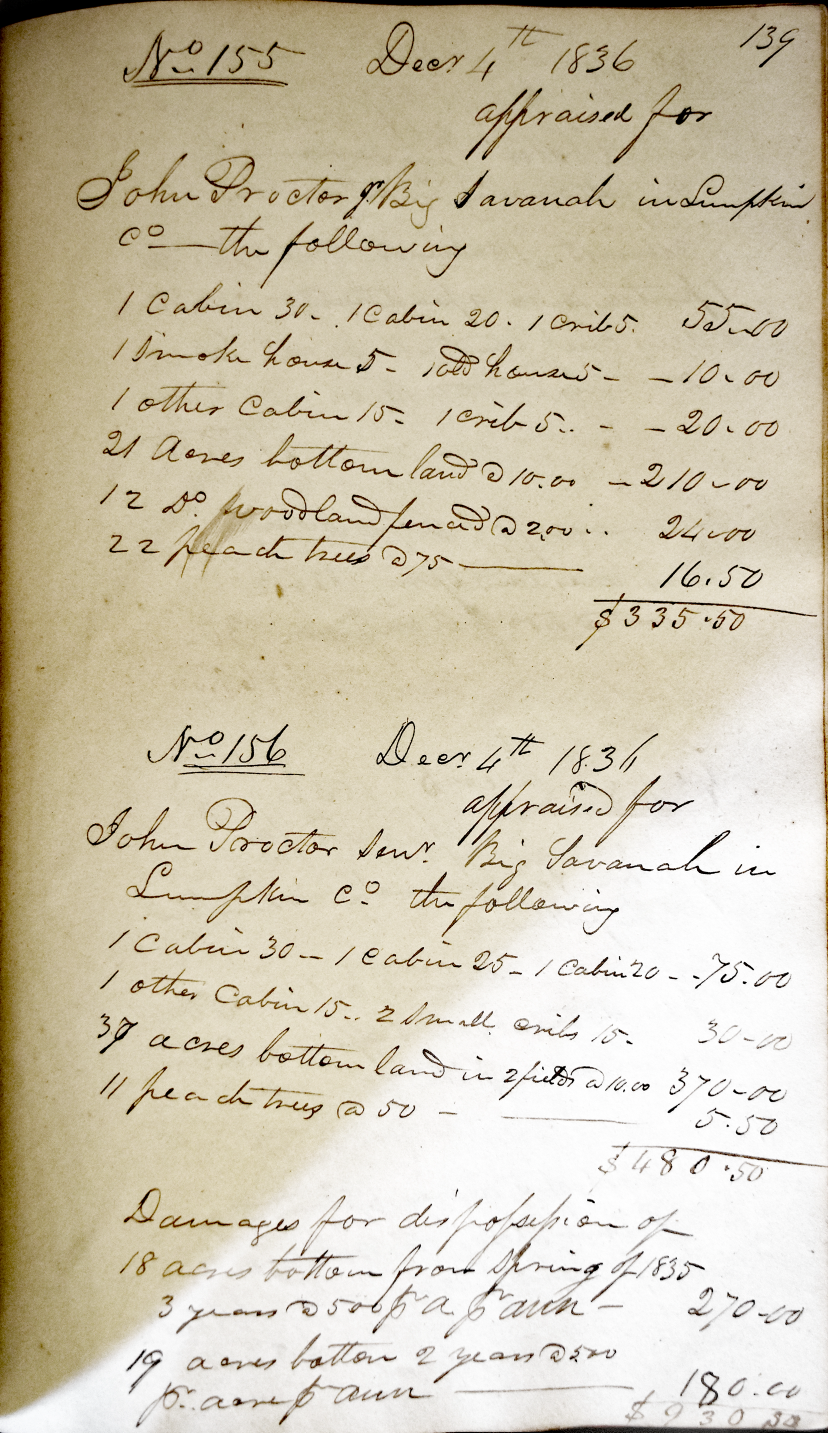 139
No 155 Decr 4th 1836
appraised for
John Proctor Jr Big Savanah in Lumpkin
Co — the following
1 Cabin 30- 1 Cabin 20- 1 crib 5. 55-00
1 Smoke house 5- 1 old house 5- - 10-00
1 other Cabin 15- 1 crib 5.. - - 20-00
21 Acres bottom land @ 10.00 - 210-00
12 Do. woodland fenced @ 2.00 .. 24-00
22 peach trees @ 75 — 16.50
$335.50
No 156 Decr 4th 1836
appraised for
John Proctor Senr. Big Savanah in
Lumpkin Co the following
1 Cabin 30 - 1 Cabin 25 - 1 Cabin 20 - - 75.00
1 other Cabin 15.. 2 Small cribs 15- 30-00
37 acres bottom land in 2 fields @ 10.00 370-00
11 peach trees @ 50 - — 5.50
$480.50
Damages for dispossession of
18 acres bottom from Spring of 1835
3 years @ 500 pr a pr ann - 270-00
19 acres bottom 2 years @ 500
pr. acre pr ann — 180.00
$930.50